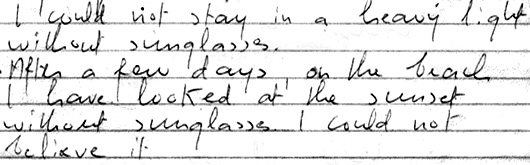 I could not stay in a heavy light
without sunglasses.
After a few days, on the beach
I have looked at the sunset
without sunglasses I could not
believe it